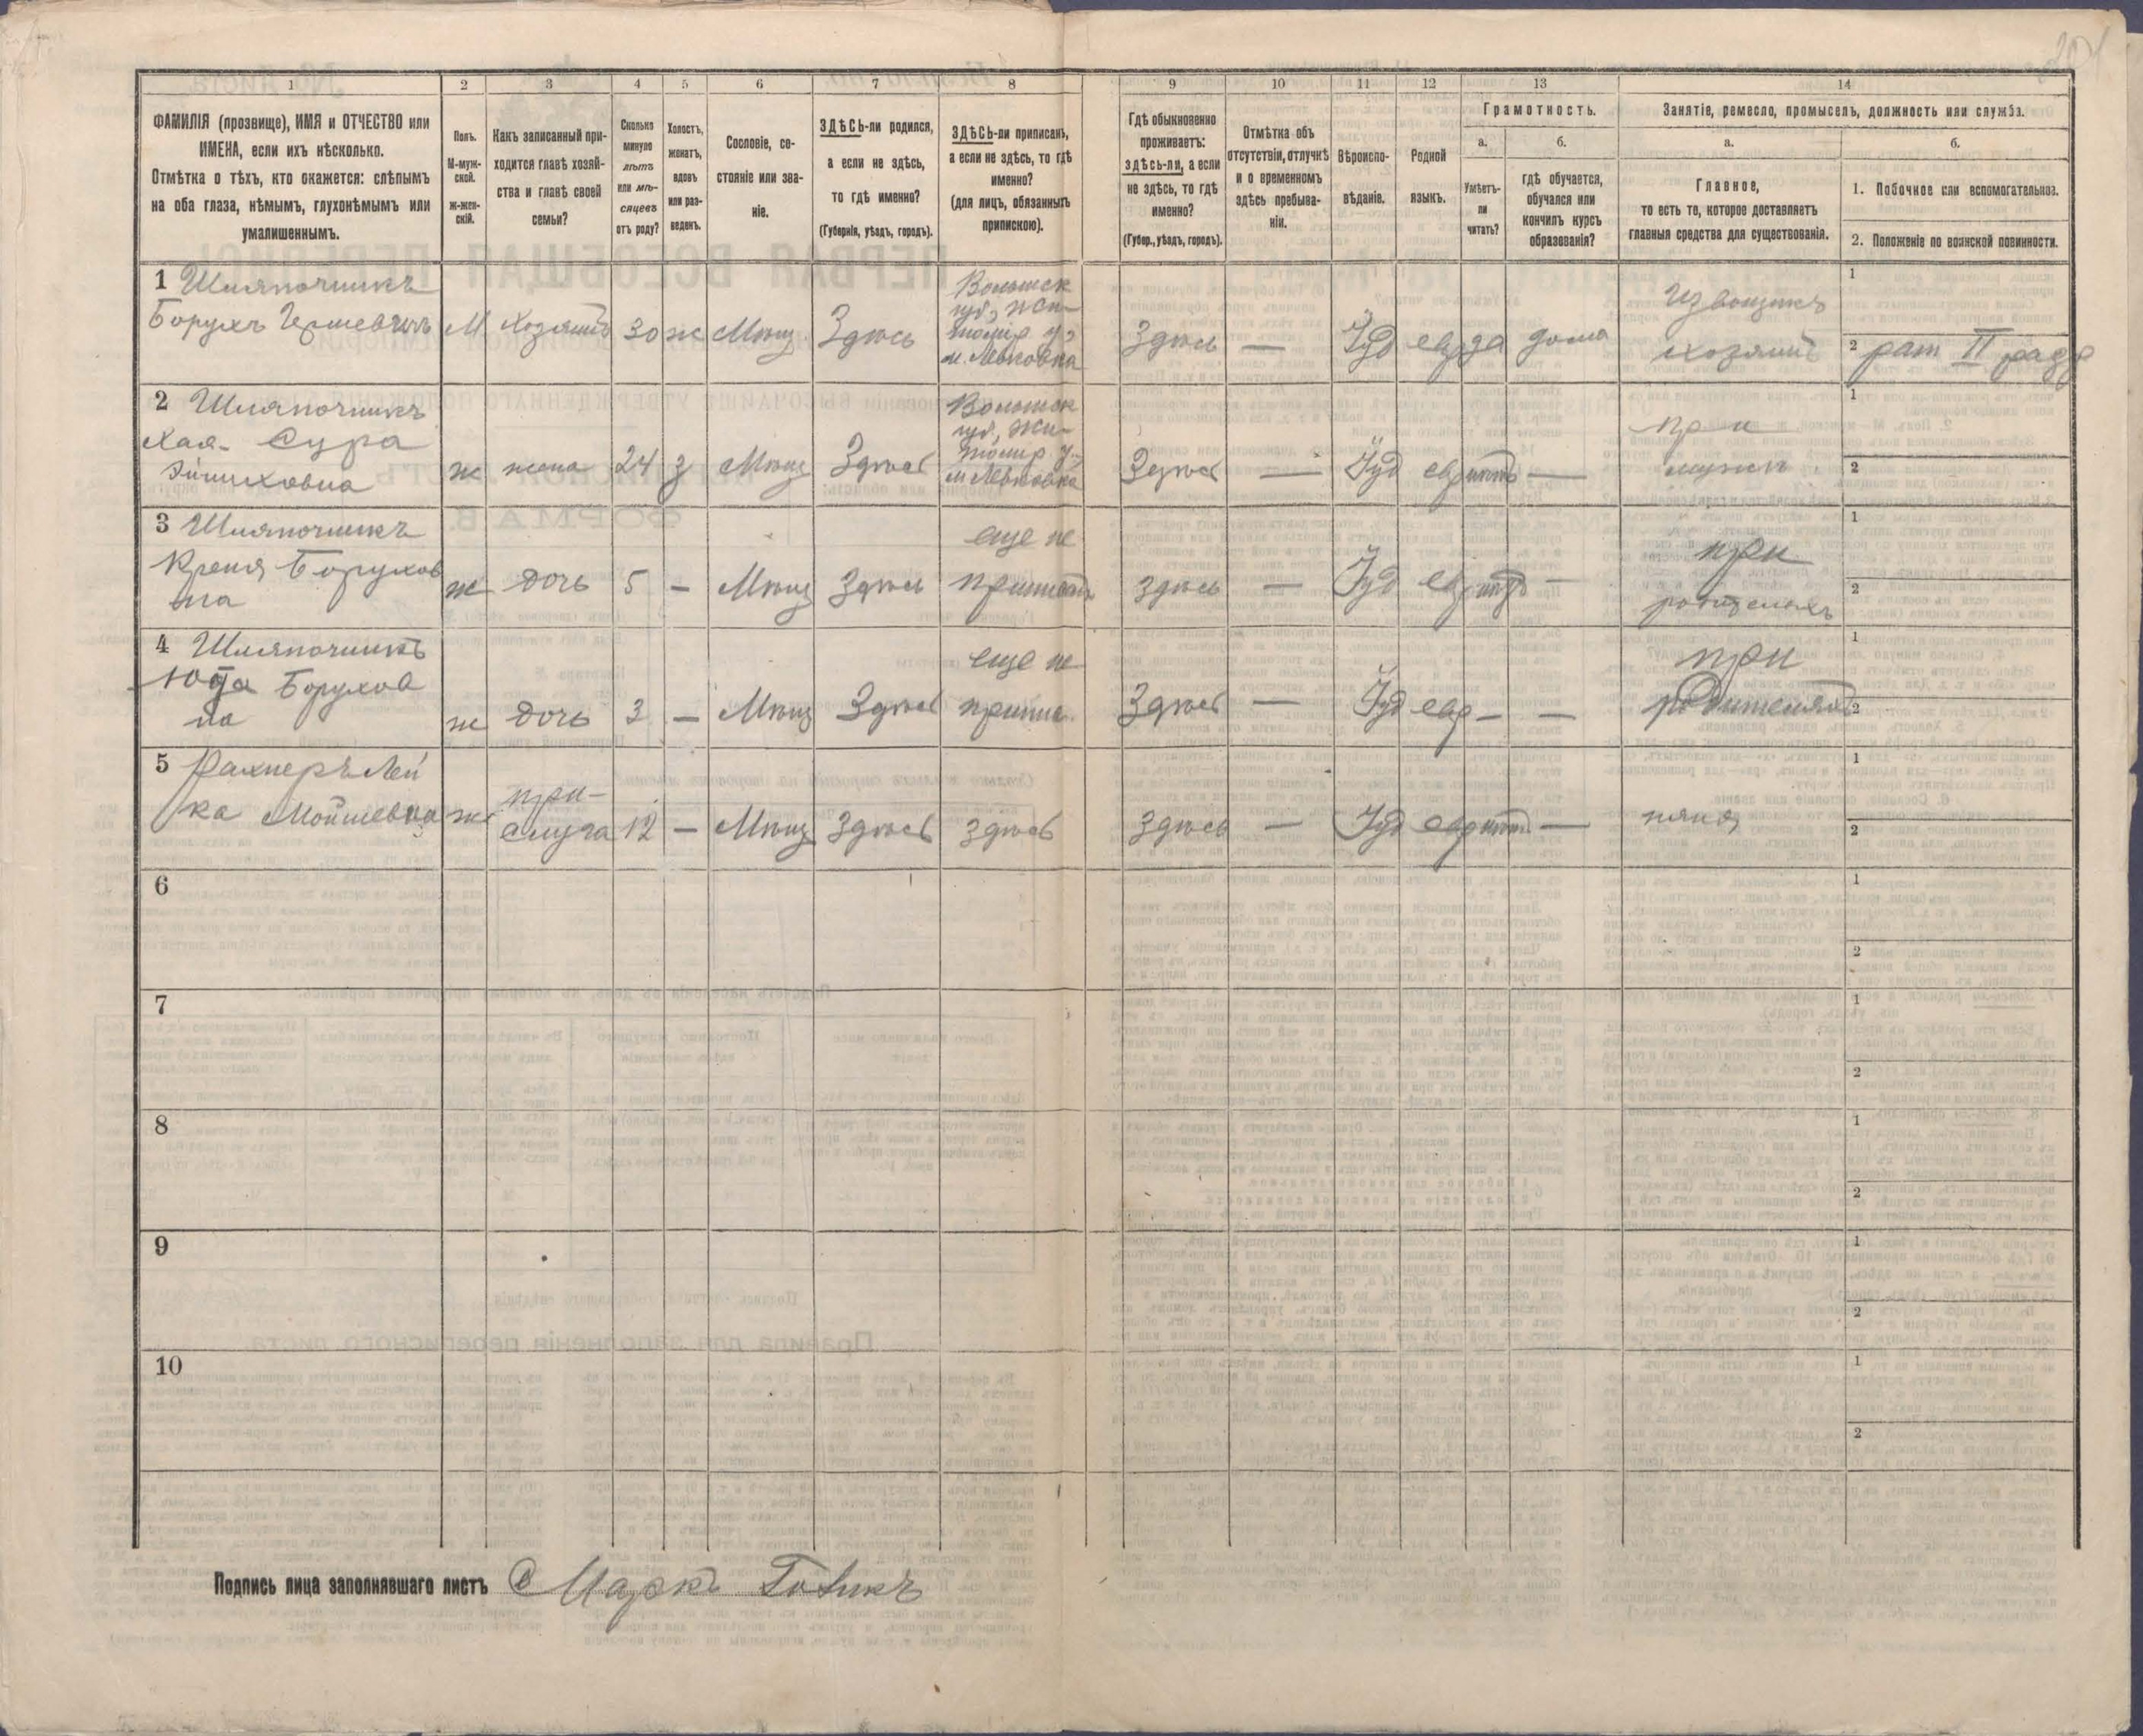 1
2
3
4
5
6
7
8
9
10
11
12
13
14
ФАМИЛІЯ (прозвище), ИМЯ и ОТЧЕСТВО или
ИМЕНА, если ихъ нѣсколько.
Отмѣтка о тѣхъ, кто окажется: слѣпымъ
на оба глаза, нѣмымъ, глухонѣмымъ или
умалишеннымъ.
Полъ.
М-муж-
ской.
Ж-жен-
скій.
Какъ записанный при-
ходится главѣ хозяй-
ства и главѣ своей
семьи?
Сколько
минуло
лѣтъ
или мѣ-
сяцевъ
отъ роду?
Холостъ,
женатъ,
вдовъ
или раз-
веденъ.
Сословіе, со-
стояніе или зва-
ніе.
ЗДѢСЬ-ли родился,
а если не здѣсь,
то гдѣ именно?
(Губернія, уѣздъ, городъ).
ЗДѢСЬ-ли приписанъ,
а если не здѣсь, то гдѣ
именно?
(для лицъ, обязанныхъ
припискою).
Гдѣ обыкновенно
проживаетъ:
здѣсь-ли, а если
не здѣсь, то гдѣ
именно?
(Губер., уѣздъ, городъ).
Отмѣтка объ
отсутствіи, отлучкѣ
и о временномъ
здѣсь пребыва-
ніи.
Вѣроиспо-
вѣданіе.
Родной
языкъ.
Грамотность.
а.
Умѣетъ-
ли
читать?
б.
гдѣ обучается,
обучался или
кончилъ курсъ
образованія?
Занятіе, ремесло, промыселъ, должность или служба.
а.
Главное,
то есть то, которое доставляетъ
главныя средства для существованія.
б.
1. Побочное или вспомогательное.
2. Положеніе по воинской повинности.
1 Шляпочникъ
Борухъ Гершевичъ
М
Хозяинъ
30
ж
Мѣщ
Здѣсь
Волынск
губ, Жи-
томир у,
м. Левковка
Здѣсь
—
Іуд
евр
да
дома
Извощикъ
хозяинъ
1
2 рат II разр
2 Шляпочникъ
Хая-Сура
ж
жена
24
з
Мѣщ
Здѣсь
Волынск
губ, Жи-
томир у,
м Левковка
Здѣсь
—
Іуд
евр
нѣтъ
—
при
мужѣ
1
2
3 Шляпочникъ
Крейня Борухов
на
ж
дочь
5
—
Мѣщ
Здѣсь
еще не
приписана
здѣсь
—
Іуд
евр
нѣтъ
—
при
родителяхъ
1
2
4 Шляпочникъ
Юта Борухов
на
ж
дочь
3
—
Мѣщ
Здѣсь
еще не
припис.
Здѣсь
—
Іуд
евр
—
—
при
родителяхъ
1
2
5 Рахнеръ Лей
ка Мойшевна
ж
при-
слуга
12
—
Мѣщ
Здѣсь
здѣсь
здѣсь
—
Іуд
евр
нѣтъ
—
няня
1
2
6
1
2
7
1
2
8
1
2
9
1
2
10
1
2
Подпись лица заполнявшаго листъ Маркъ